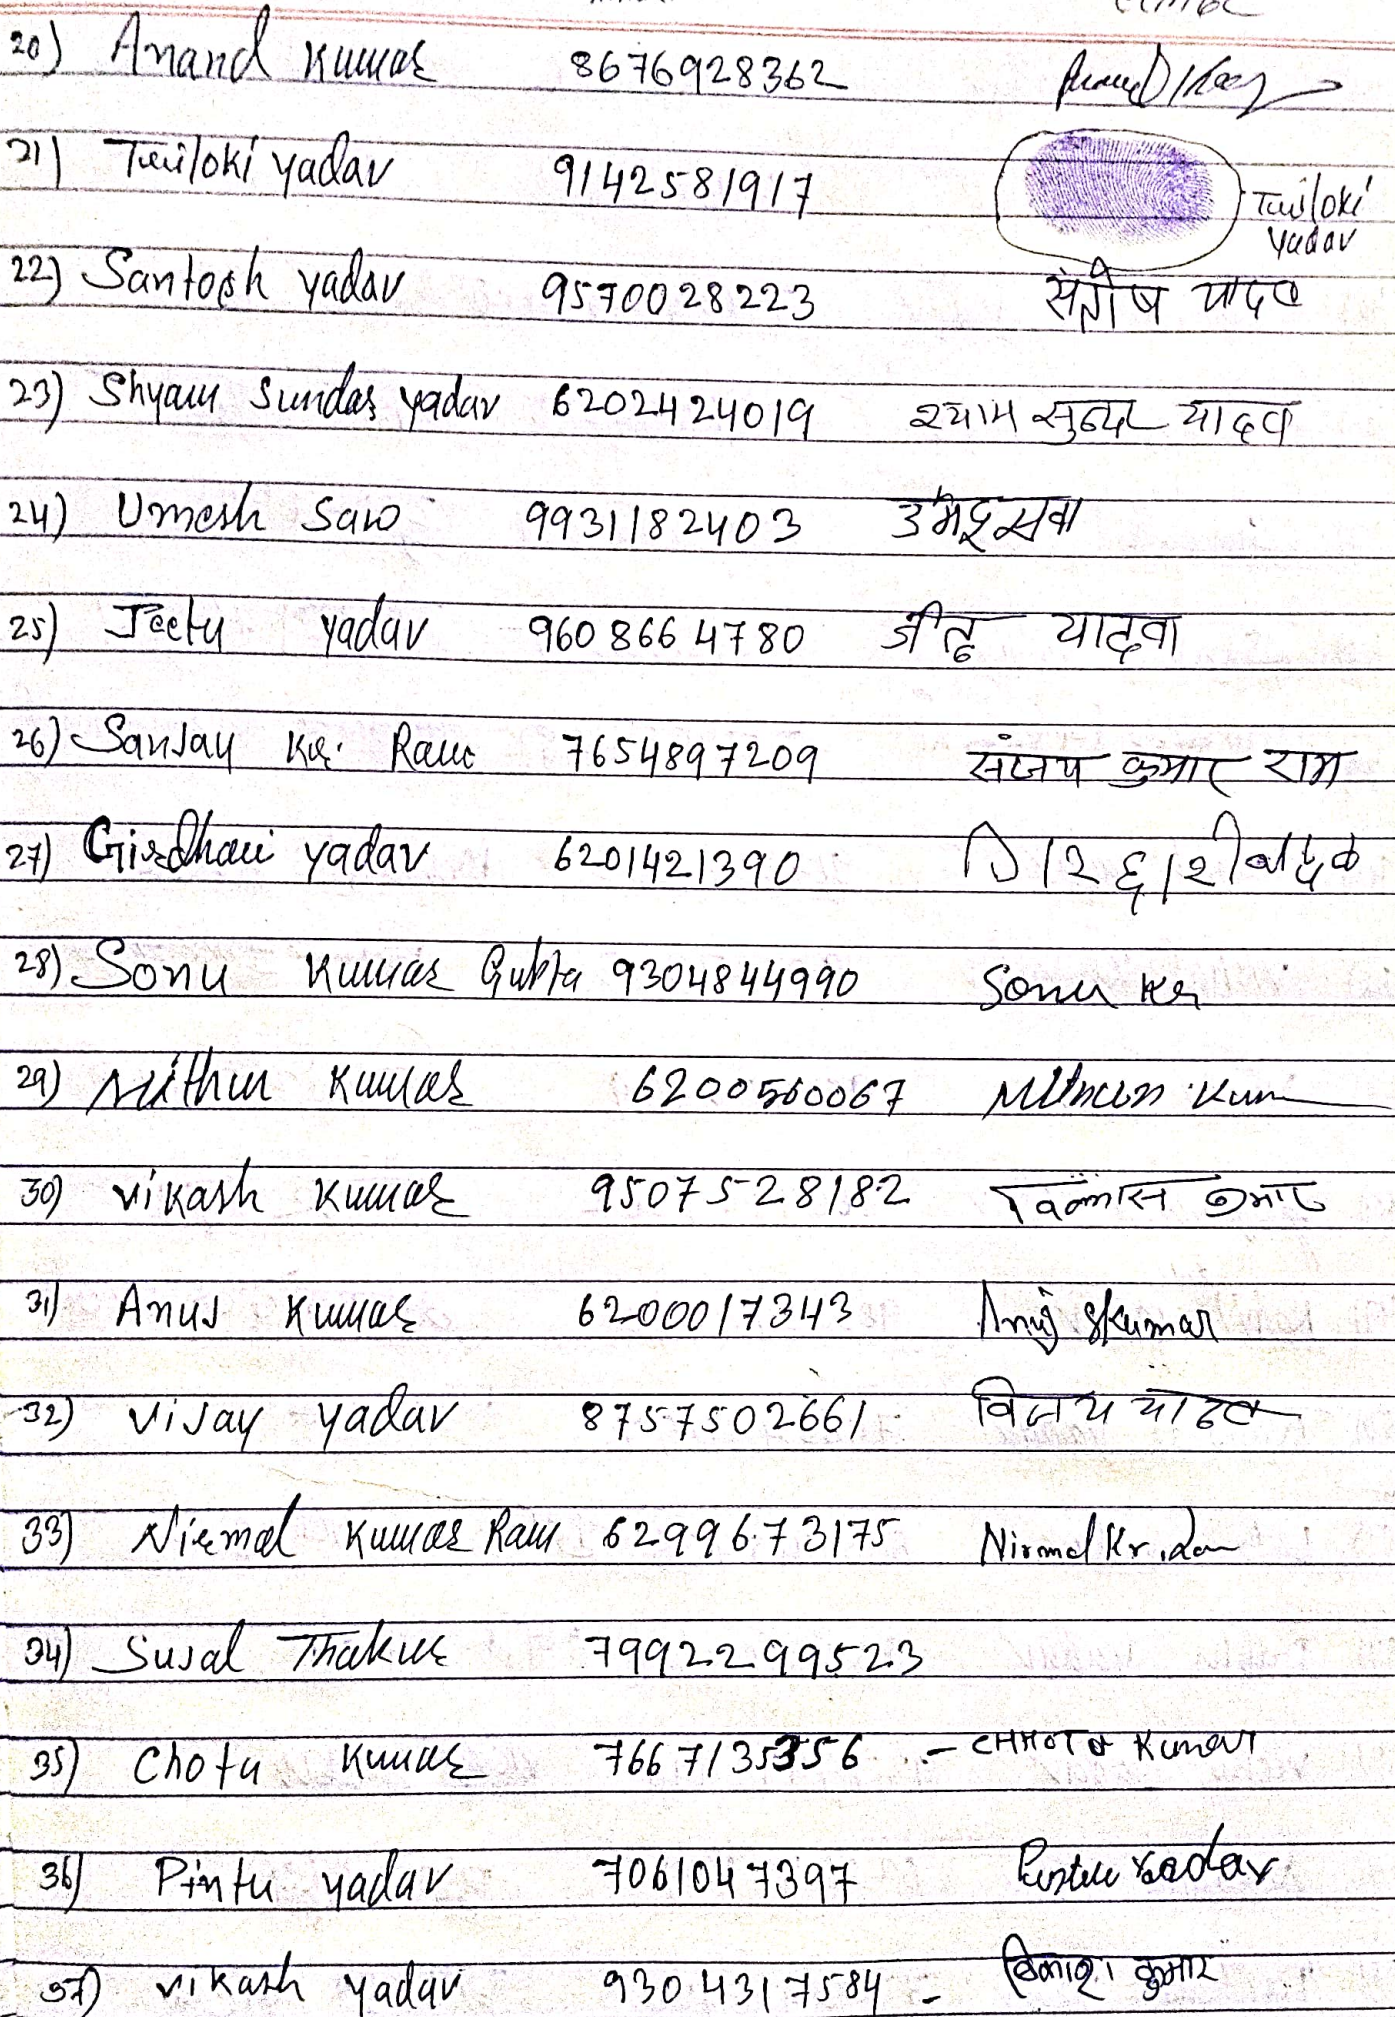 20) Anand Kumar 8676928362
21) Triloki Yadav 9142581917 Triloki Yadav
22) Santosh Yadav 9570028223 संतोष यादव
23) Shyam Sundar Yadav 6202424019 श्याम सुन्दर यादव
24) Umesh Saw 9931182403
25) Jeetu Yadav 9608664780 जीतू यादवा
26) Sanjay Kr. Ram 7654897209 संजय कुमार राम
27) Girdhari Yadav 6201421390
28) Sonu Kumar Gupta 9304844990 Sonu Kr
29) Mithun Kumar 6200560067 Mithun Kum
30) Vikash Kumar 9507528182
31) Anuj Kumar 6200017343 Anuj Kumar
32) Vijay Yadav 8757502661 विजय यादव
33) Nirmal Kumar Ram 6299673175 Nirmal Kr. Ram
34) Sujal Thakur 7992299523
35) Chotu Kumar 7667135356 - CHHOTU Kumar
36) Pintu Yadav 7061047397 Pintu Yadav
37) Vikash Yadav 9304317584 - विकाश कुमार